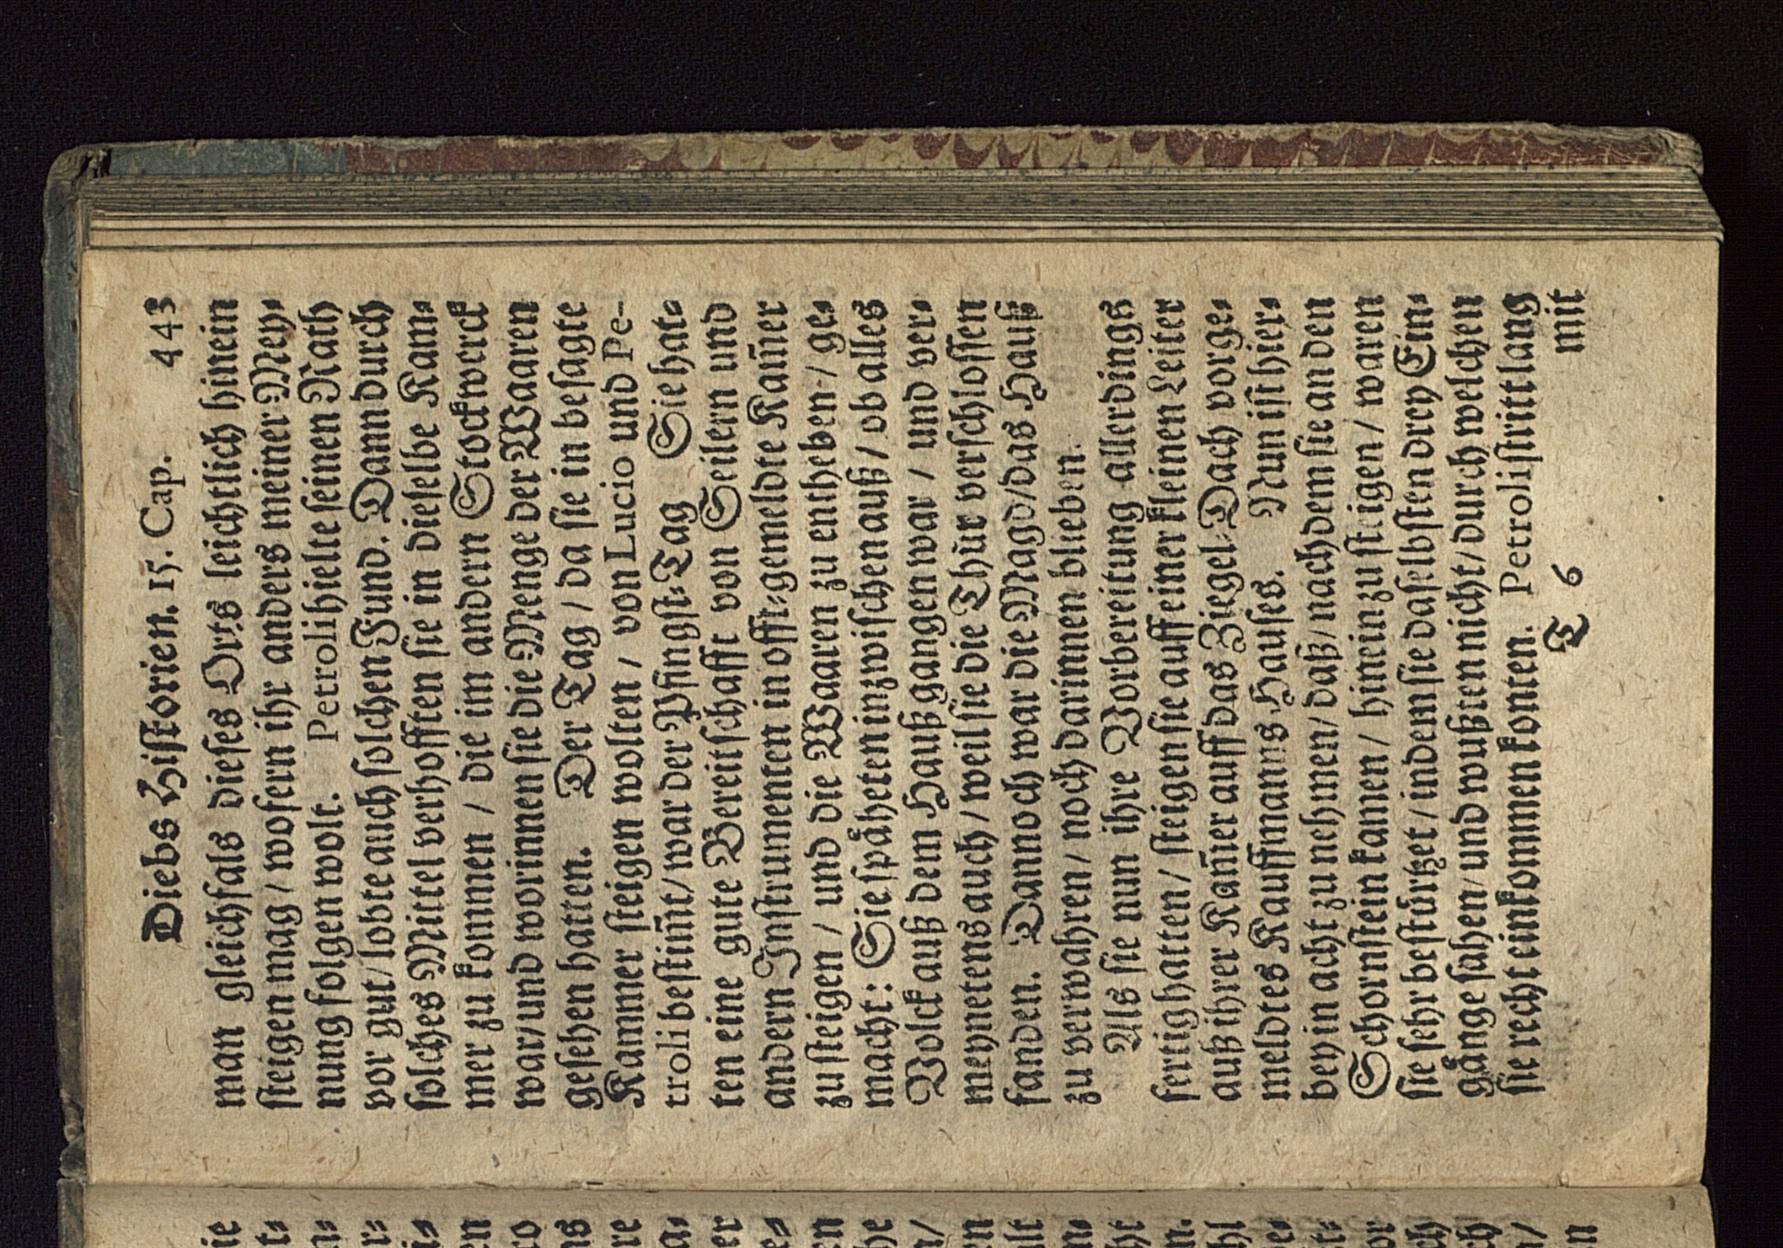 Diebs Historien. 15. Cap. 443
man gleichfals dieses Orts leichtlich hinein
steigen mag / wofern ihr anders meiner Mey⸗
nung folgen wolt. Petroli hielte seinen Rath
vor gut / lobte auch solchen Fund. Dann durch
solches Mittel verhofften sie in dieselbe Kam⸗
mer zu kommen / die im andern Stockwerck
war / und worinnen sie die Menge der Waaren
gesehen hatten. Der Tag / da sie in besagte
Kammer steigen wolten / von Lucio und Pe-
troli bestim̃t / war der Pfingst⸗Tag Sie hat⸗
ten eine gute Bereitschafft von Seilern und
andern Instrumenten in offt⸗gemeldte Kam̃er
zu steigen / und die Waaren zu entheben / ge⸗
macht: Sie spåheten inzwischen auß / ob alles
Volck auß dem Hauß gangen war / und ver⸗
meynetens auch / weil sie die Thür verschlossen
fanden. Dannoch war die Magd / das Hauß
zu verwahren / noch darinnen blieben.
Als sie nun ihre Vorbereitung allerdings
fertig hatten / steigen sie auff einer kleinen Leiter
auß ihrer Kam̃er auff das Ziegel⸗Dach vorge⸗
meldtes Kauffmanns Hauses. Nun ist hier⸗
bey in acht zu nehmen / daß / nachdem sie an den
Schornstein kamen / hinein zu steigen / waren
sie sehr bestürtzet / indem sie daselbsten drey Ein⸗
gånge sahen / und wußten nicht / durch welchen
sie recht einkommen konten. Petroli stritt lang
T 6 mit